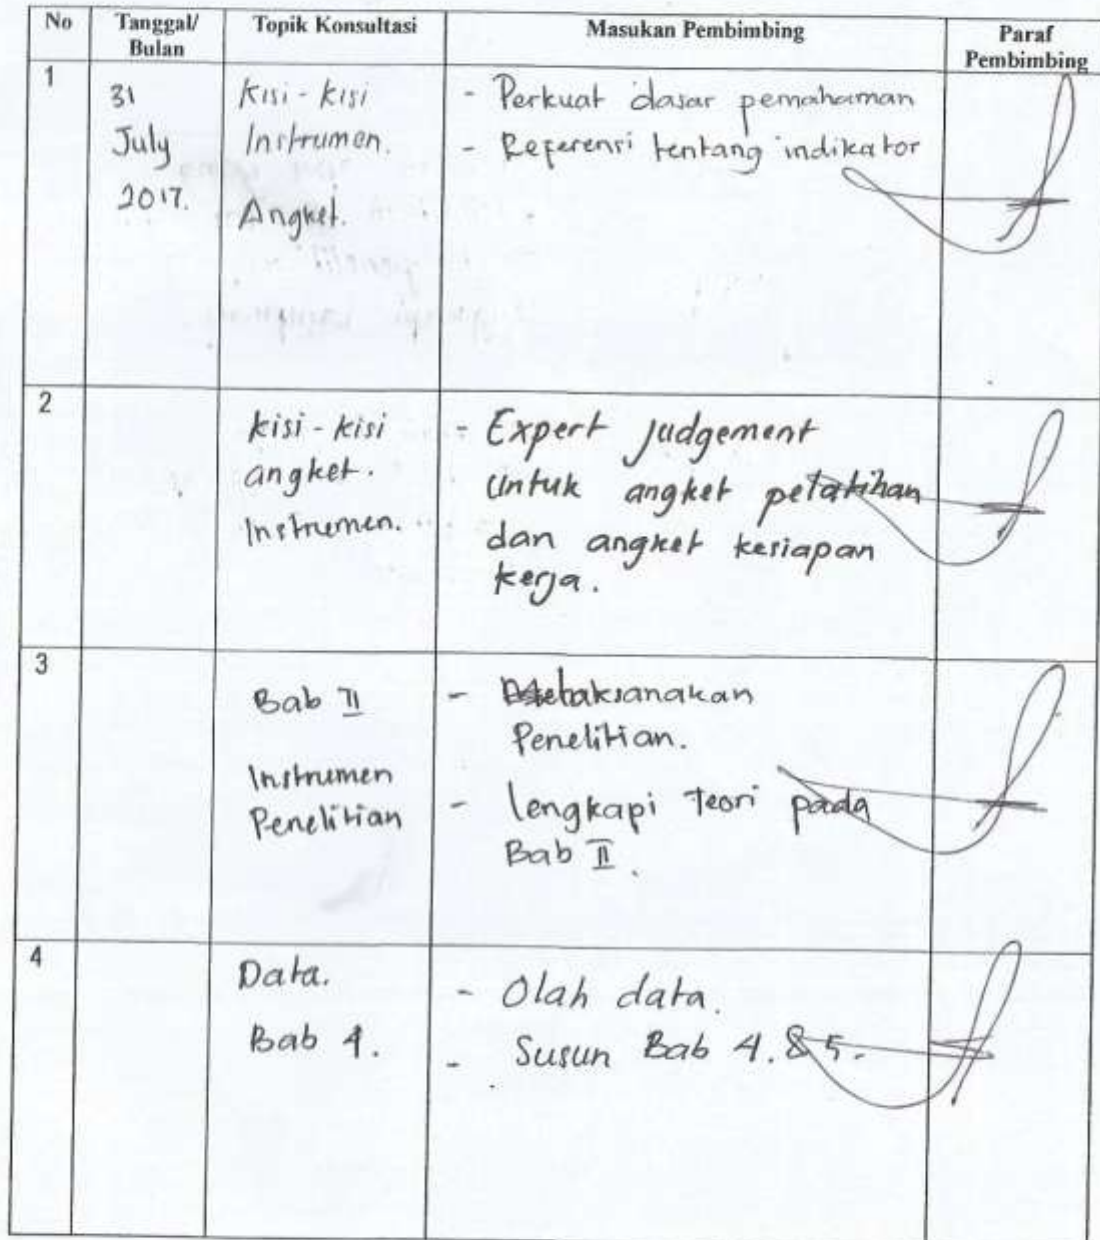 No
Tanggal/
Bulan
Topik Konsultasi
Masukan Pembimbing
Paraf
Pembimbing
1
31
July
2017.
Kisi-kisi
Instrumen.
Angket.
- Perkuat dasar pemahaman
- Referensi tentang indikator
2
kisi-kisi
angket.
Instrumen.
- Expert judgement
Untuk angket pelatihan
dan angket kesiapan
kerja.
3
Bab II
Instrumen
Penelitian
- laksanakan
Penelitian.
- lengkapi Teori pada
Bab II.
4
Data.
Bab 4.
- Olah data.
- Susun Bab 4. & 5.